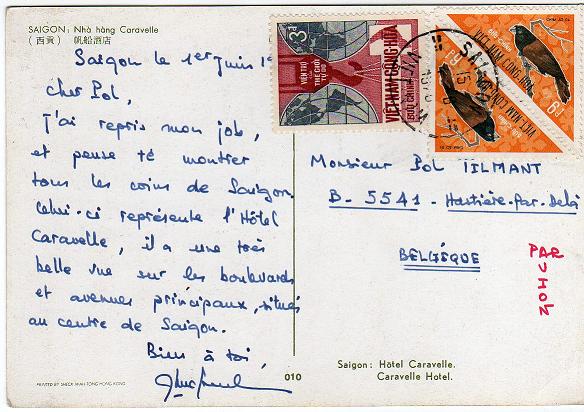 SAIGON: Nhà hàng Caravelle
(西貢) 帆船酒店
Saigon le 1er Juin
Cher Pol,
J'ai repris mon job,
et pense te montrer
tous les coins de Saigon.
Celui-ci représente l'Hôtel
Caravelle, il a une très
belle vue sur les boulevards
et avenues principaux, situés
au centre de Saigon.
Bien à toi,
PRINTED BY SHECK WAH TONG HONG KONG
010
3đ
VIỆN TRỢ THẾ GIỚI TỰ DO
VIỆT-NAM CỘNG-HÒA
BƯU-CHÍNH
VIỆT-NAM CỘNG-HÒA
VIỆT-NAM CỘNG-HÒA
SAIGON
Monsieur Pol TILMANT
B-5541 - Hastière-Par-Delà
BELGIQUE
PAR
AVION
Saigon: Hôtel Caravelle.
Caravelle Hotel.